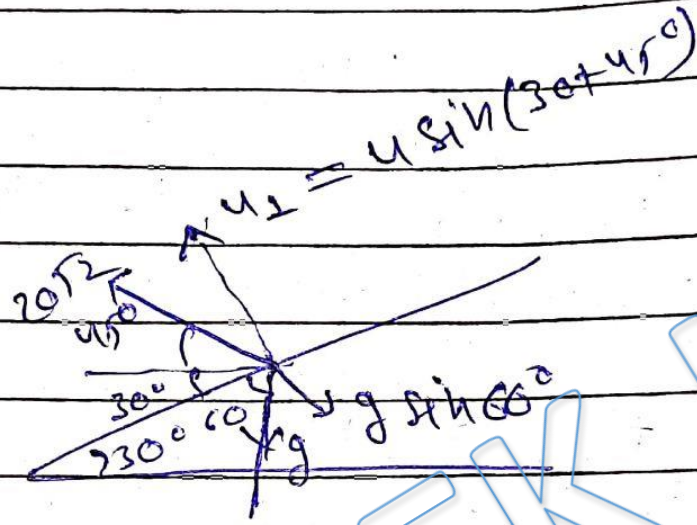 u⊥ = u sin(30+45°)
20√2
45°
30°
60
g sin 60°
30°
g